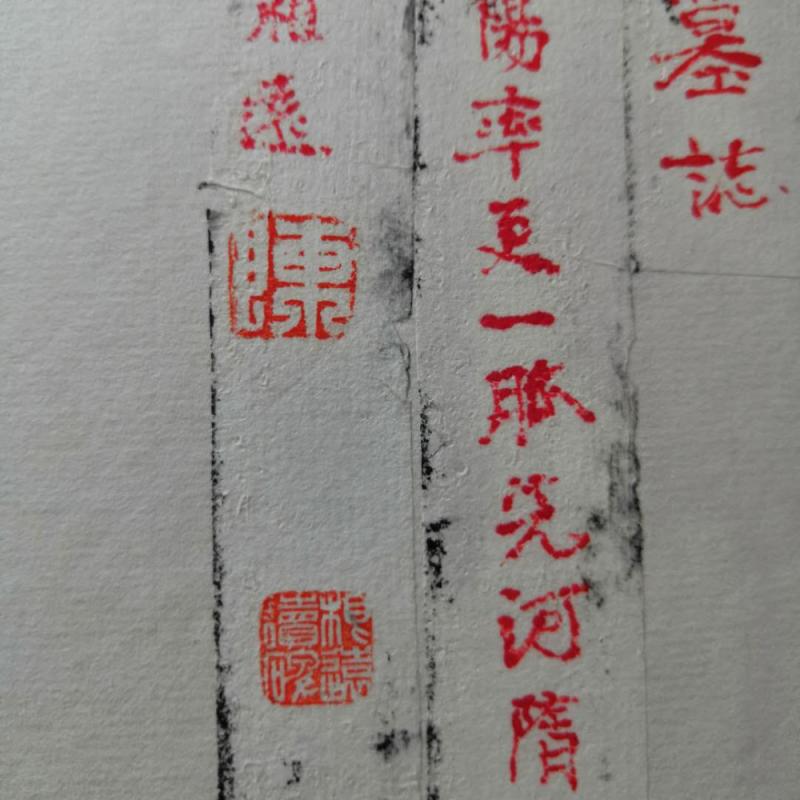 墓誌
陽率更一脈先河隋
陳